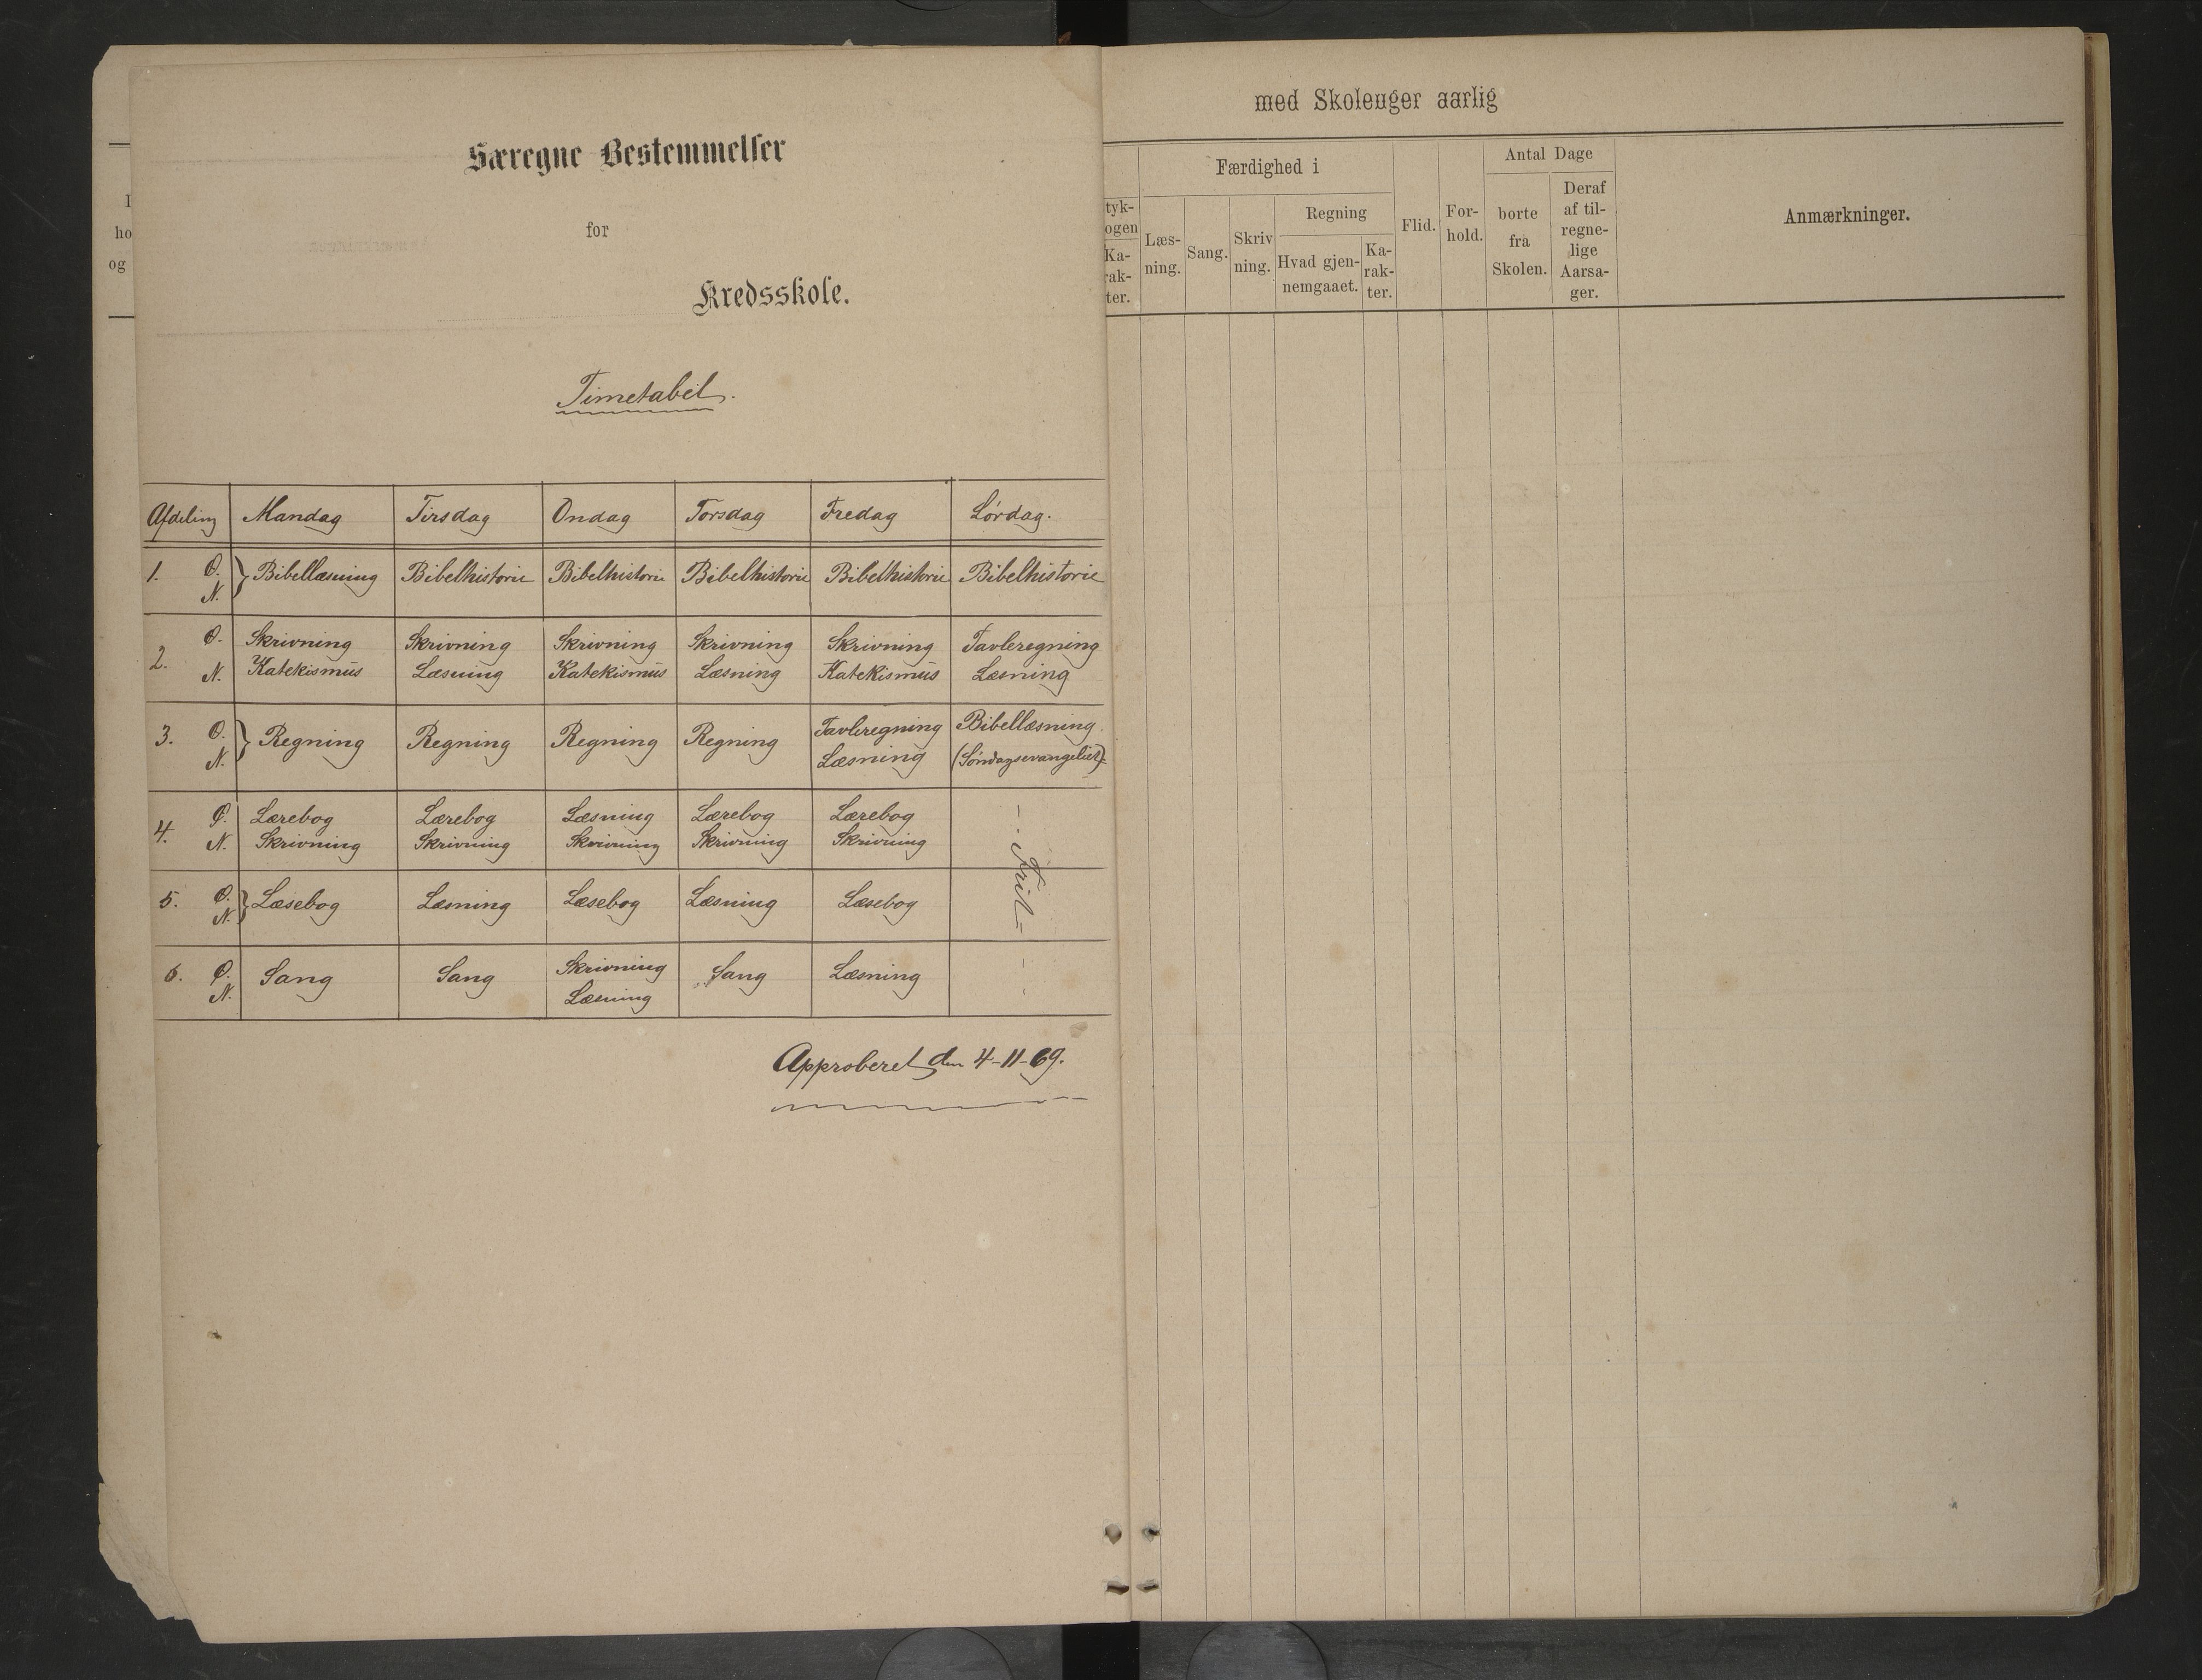 Særegne Bestemmelser
for
Kredsskole.
Timetabel.
Afdeling Mandag Tirsdag Ondag Torsdag Fredag Lørdag.
1. Ø. N. } Bibellæsning Bibelhistorie Bibelhistorie Bibelhistorie Bibelhistorie Bibelhistorie
2. Ø. Skrivning Skrivning Skrivning Skrivning Skrivning Tavleregning
N. Katekismus Læsning Katekismus Læsning Katekismus Læsning
3. Ø. N. } Regning Regning Regning Regning Tavleregning Bibellæsning
Læsning (Søndagsevangeliet).
4. Ø. Lærebog Lærebog Læsning Lærebog Lærebog
N. Skrivning Skrivning Skrivning Skrivning Skrivning
5. Ø. N. } Læsebog Læsning Læsebog Læsning Læsebog
6. Ø. N. Sang Sang Skrivning Sang Læsning
Læsning
Frit
Approberet den 4-11-69.
I
ho
og
med Skoleuger aarlig
tyk-
ogen
Ka-
rak-
ter.
Færdighed i
Læs-
ning.
Sang.
Skriv
ning.
Regning
Hvad gjen-
nemgaaet.
Ka-
rak-
ter.
Flid.
For-
hold.
Antal Dage
borte
fra
Skolen.
Deraf
af til-
regne-
lige
Aarsa-
ger.
Anmærkninger.